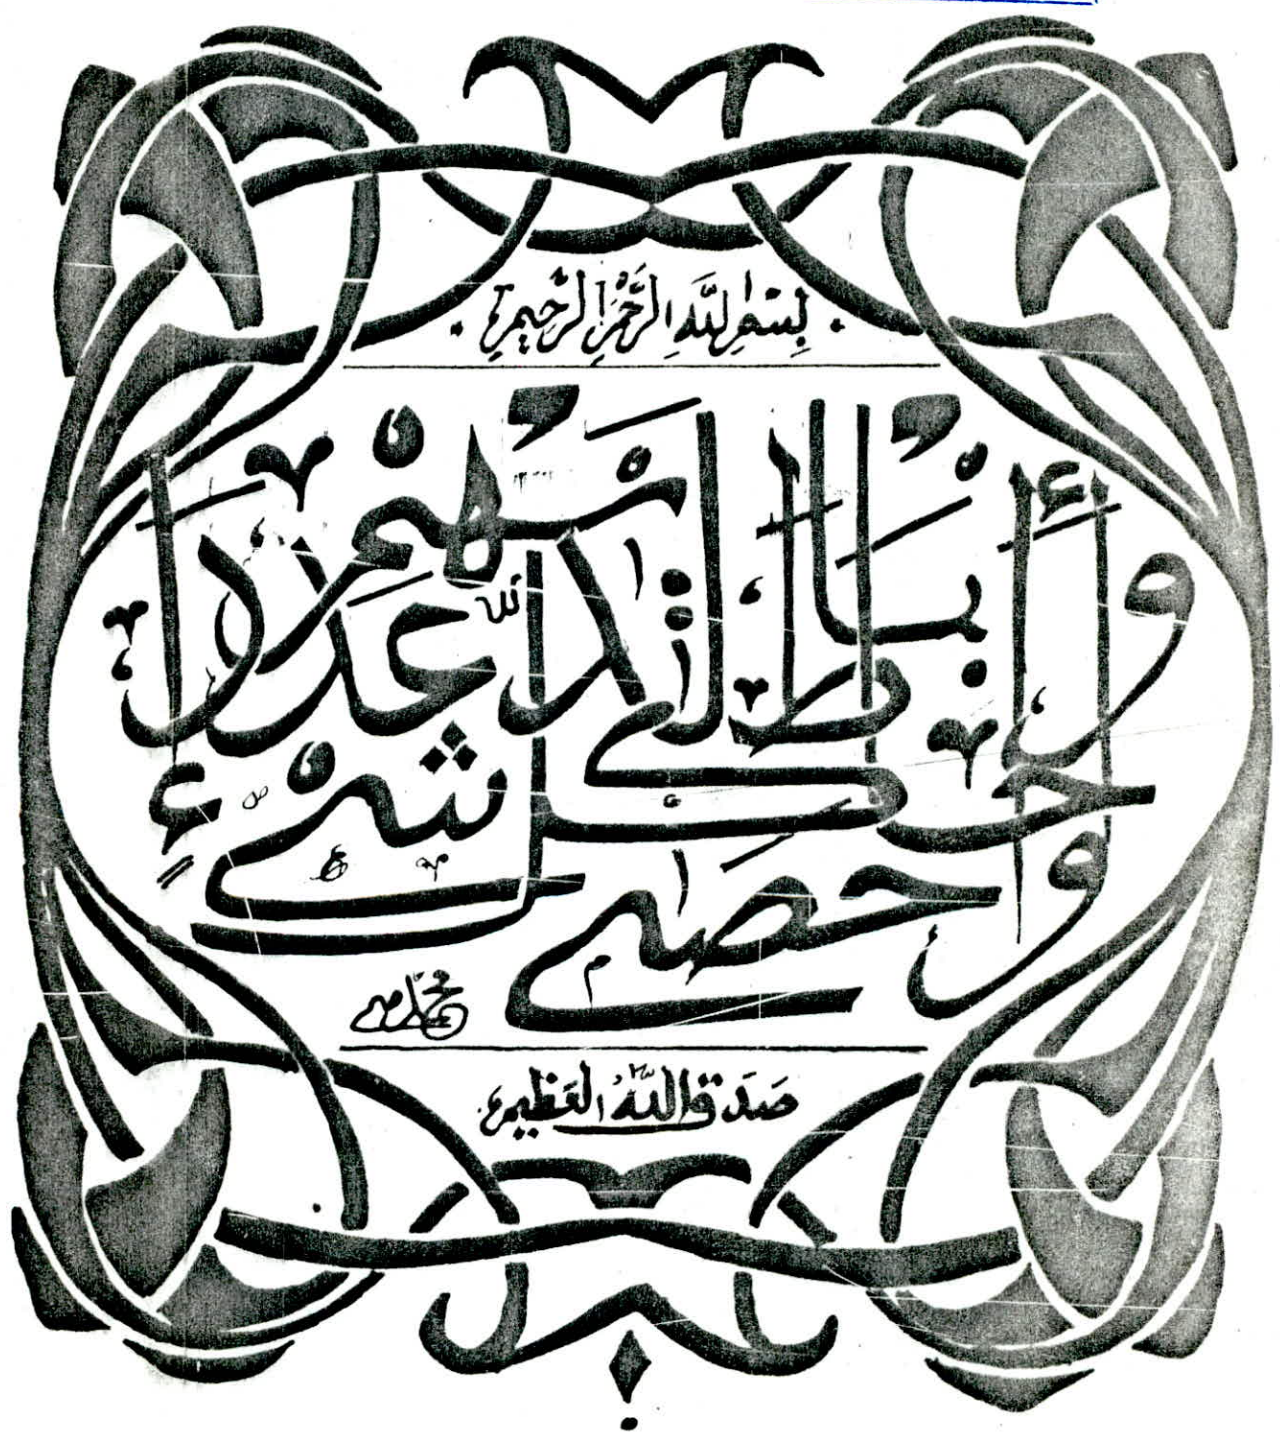 بِسْمِ اللَّهِ الرَّحْمٰنِ الرَّحِيمِ
وَأَحَاطَ بِمَا لَدَيْهِمْ وَأَحْصَىٰ كُلَّ شَيْءٍ عَدَدًا
صَدَقَ اللَّهُ العَظِيم